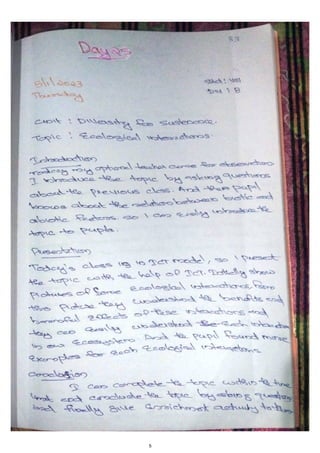 53
Day 25
5/1/2023
Thursday
Std : VIII
Div : B
Unit : Diversity for Sustenance.
Topic : Ecological interactions.
Introduction
my optional teacher came for observation
I introduce the topic by asking questions
about the previous class. And the pupil
knows about the relation between biotic and
abiotic factors. so I can easily introduce the
topic to pupils.
Presentation
Today's class is in ICT model, so I present
the topic with the help of ICT. Initially show
Pictures of some Ecological interactions from
this picture they understand the benefits and
harmful effects of these interactions and
they can easily understand the Each interaction
in our Ecosystem. And the pupil found more
Examples for each Ecological interactions.
Conclusion
I can complete the topic within the time
limit and conclude the topic by asking questions
and finally give Enrichment activity to them
5